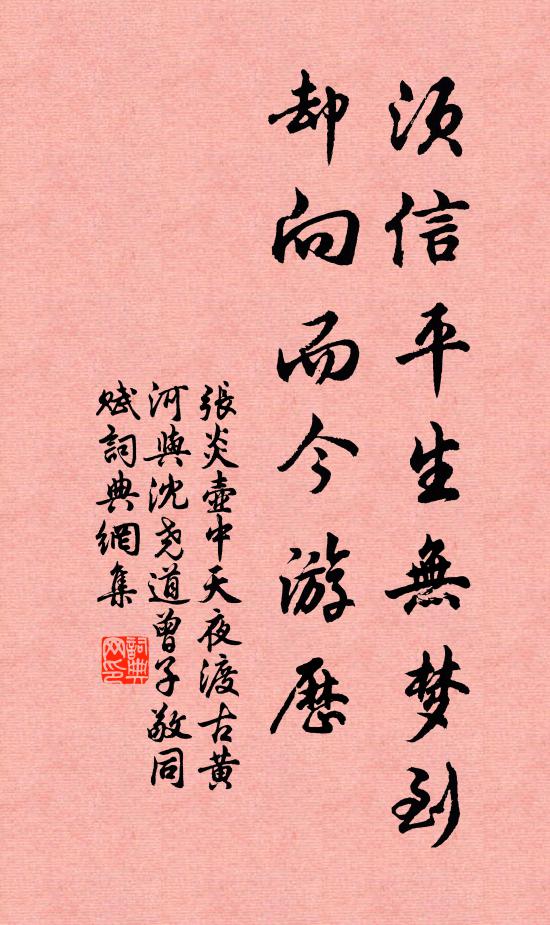 須信平生無梦到
却向而今游歷
張炎壺中天夜渡古黄
河與沈堯道曾子敬同
赋詞典網集
詞典网印